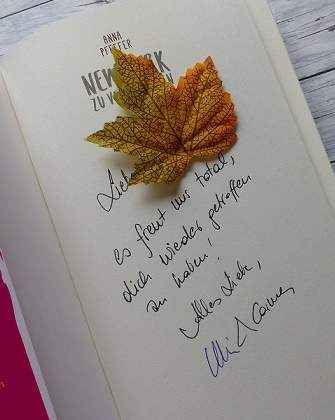 ANNA
PFEFFER
NEW
ZU
Liebe
es freut mich total,
dich wieder getroffen
zu haben!
Alles Liebe,